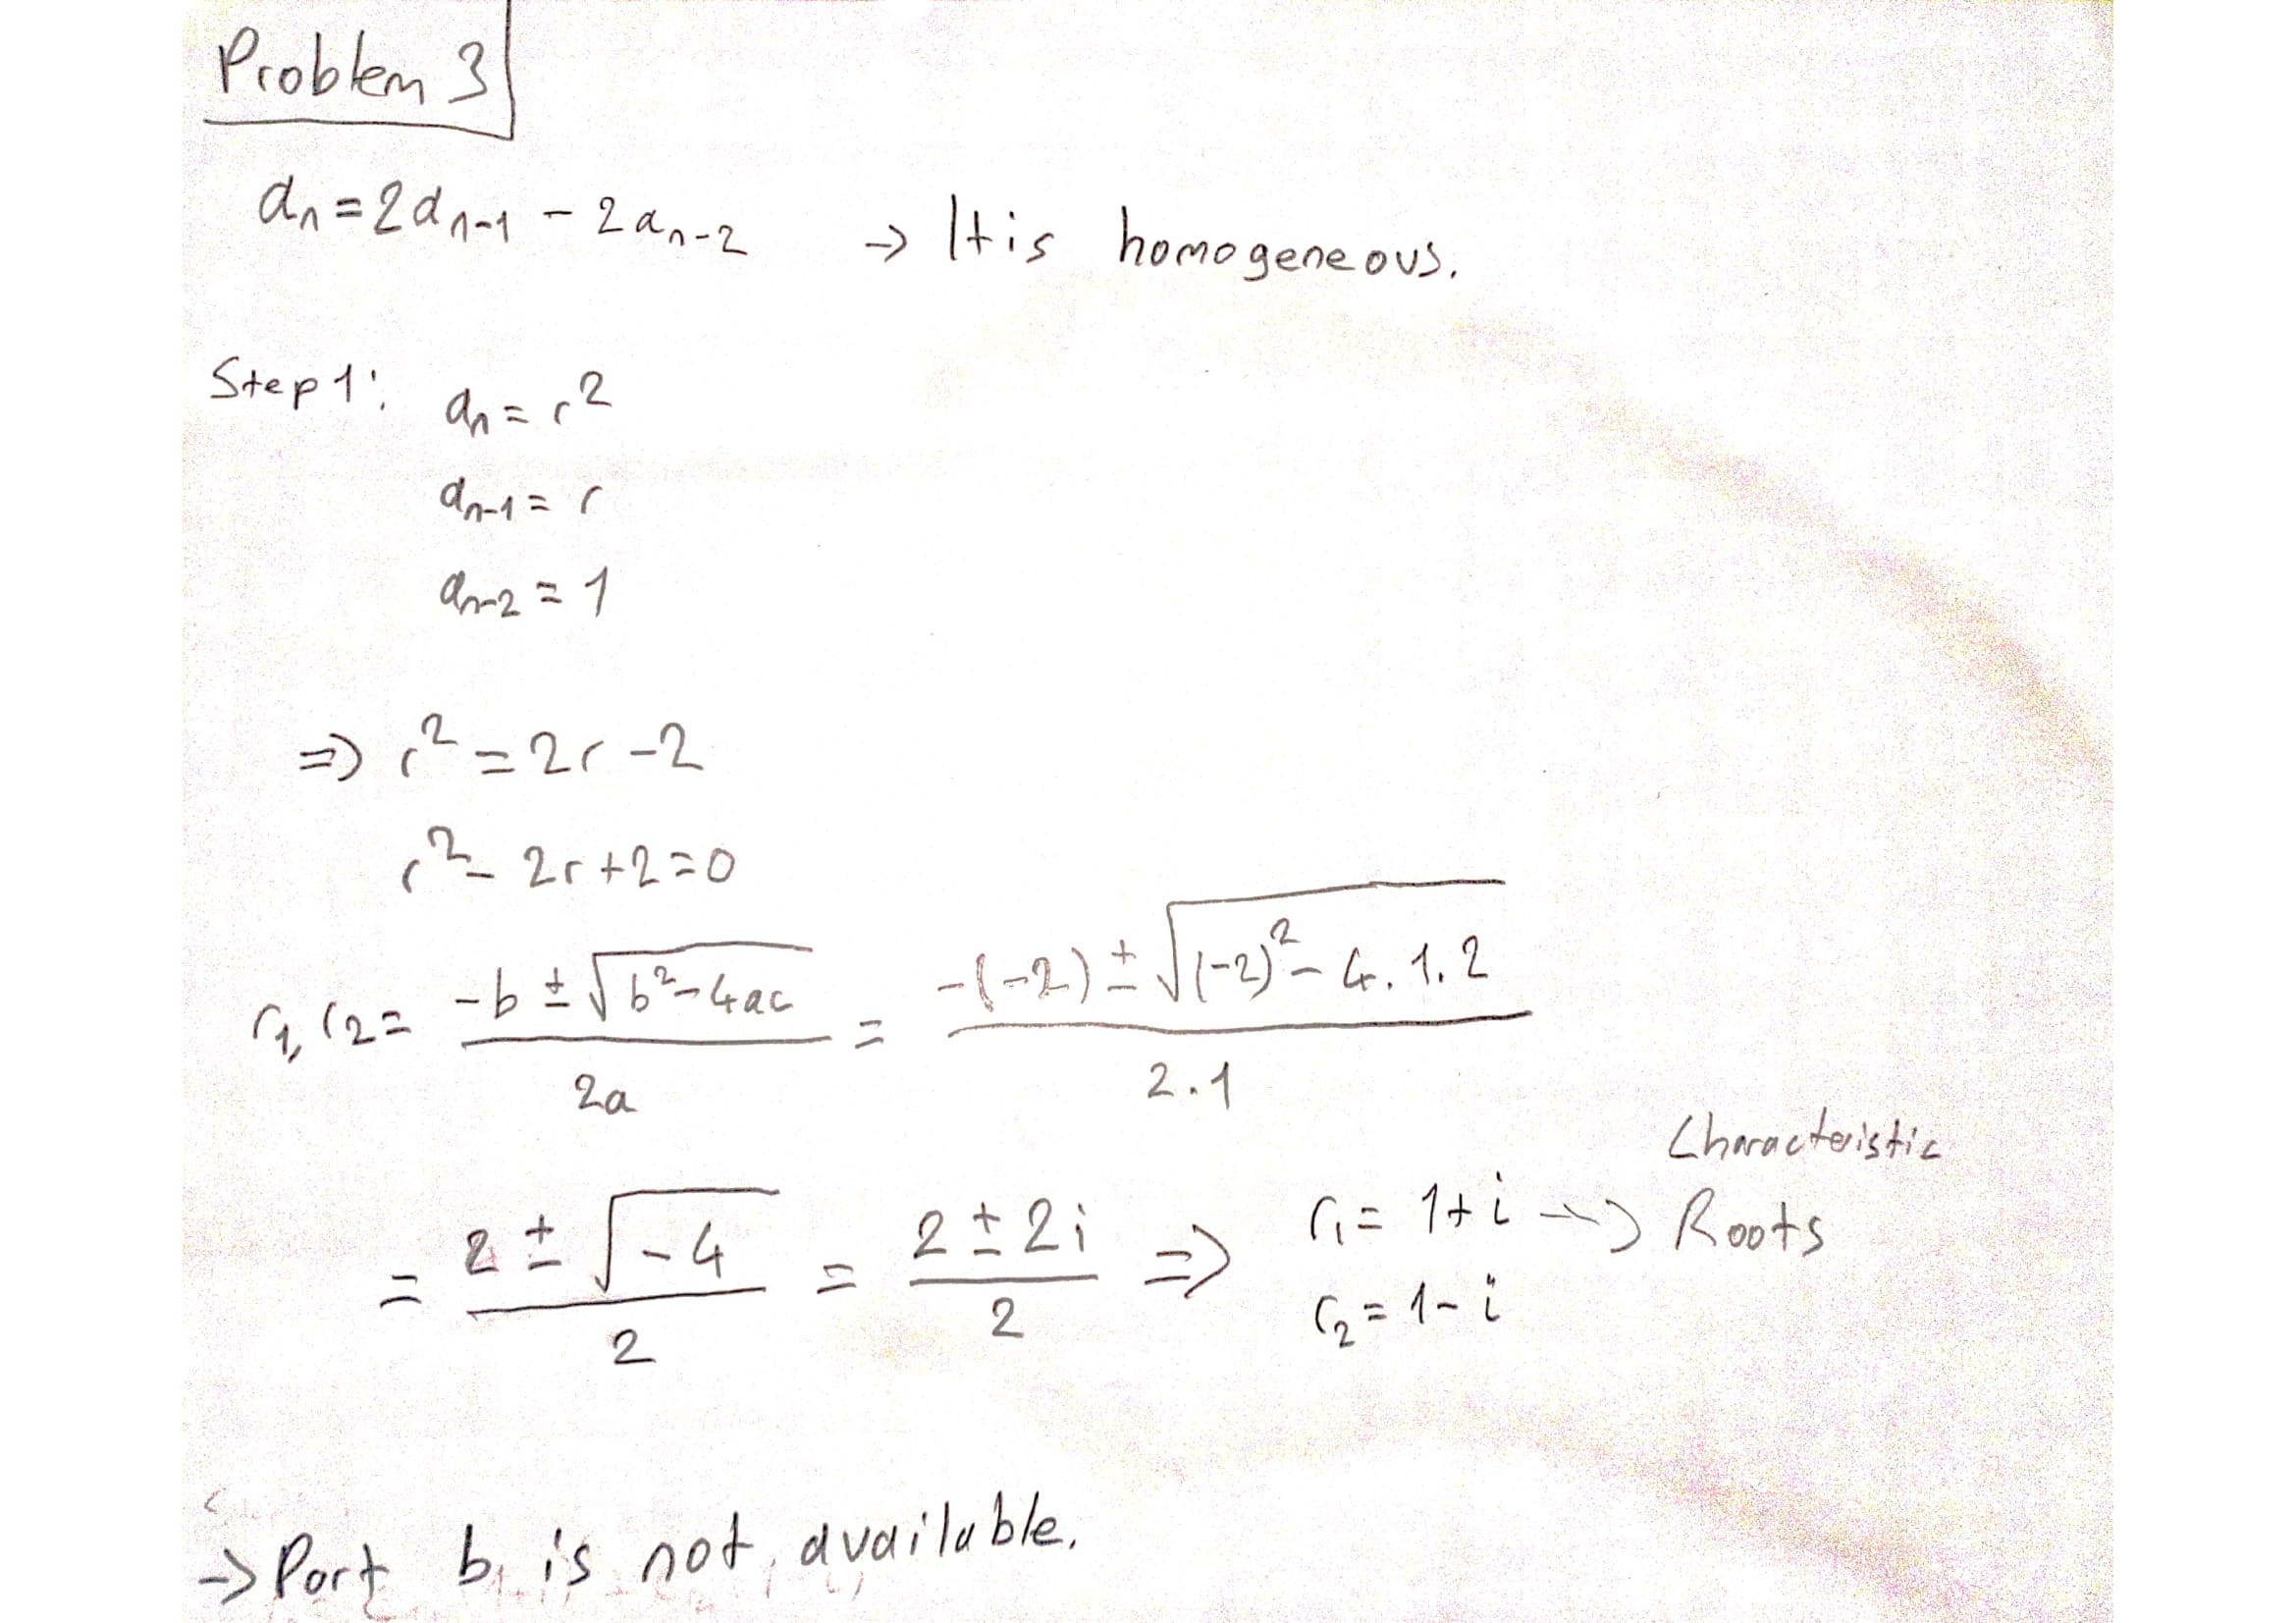 Problem 3
aₙ = 2aₙ₋₁ - 2aₙ₋₂ → It is homogeneous.
Step 1: aₙ = r²
aₙ₋₁ = r
aₙ₋₂ = 1
⇒ r² = 2r - 2
r² - 2r + 2 = 0
r₁, r₂ = (-b ± √(b² - 4ac)) / 2a = (-(-2) ± √((-2)² - 4.1.2)) / 2.1
= (2 ± √-4) / 2 = (2 ± 2i) / 2 ⇒ r₁ = 1 + i → Characteristic Roots
r₂ = 1 - i
→ Part b is not available.